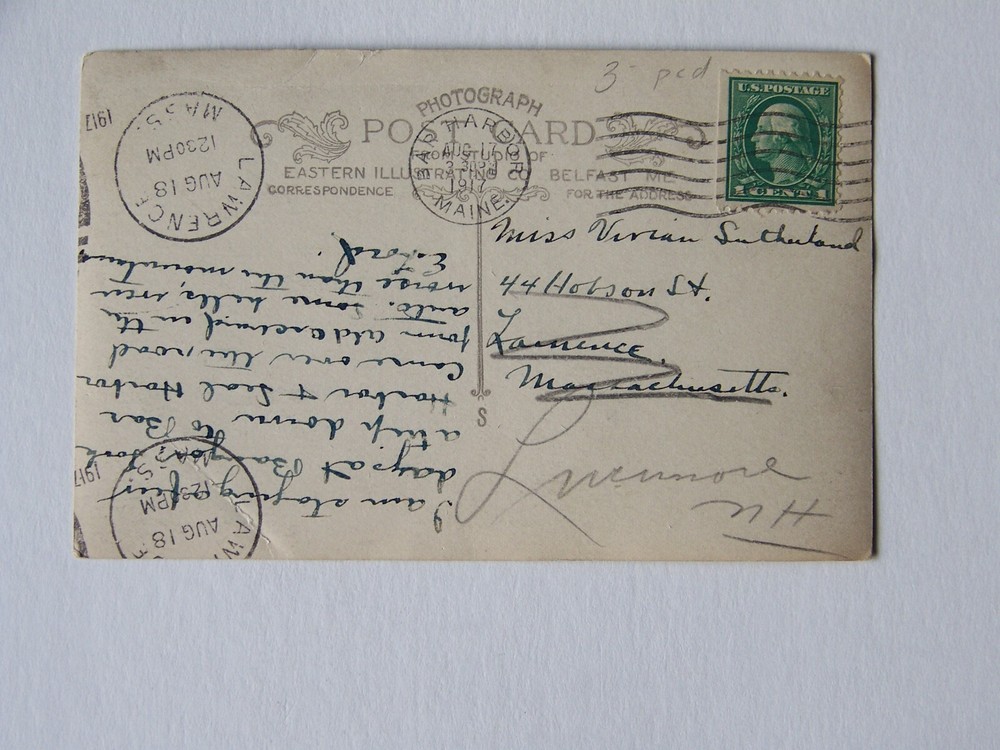 3- pcd
PHOTOGRAPH
POST CARD
FROM STUDIO OF
EASTERN ILLUSTRATING BELFAST ME.
CORRESPONDENCE
FOR THE ADDRESS
BAR HARBOR
AUG 17
1917
MAINE.
U.S. POSTAGE
1 CENT 1
Miss Vivian Sutherland
44 Hobson St.
Lawrence.
Massachusetts.
S
NH
LAWRENCE
MASS.
1230PM
AUG 18
1917
I am staying a few
days at Bangor took
a trip down to Bar
Harbor & Seal Harbor
Came over the road
form old orchard in the
auto. some hills, even
worse than the mountains
LAW
MASS.
1230PM
AUG 18
1917